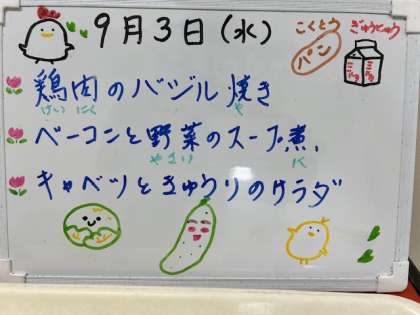 9月3日(水)
こくとう
パン
ぎゅうにゅう
ミルク
ミルク
鶏肉のバジル焼き
けい にく や
ベーコンと野菜のスープ煮
やさい に
キャベツときゅうりのサラダ